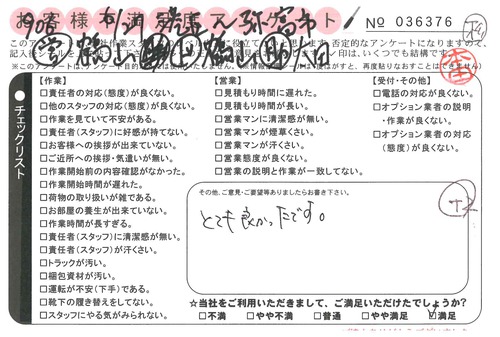 No 036376
チェックリスト
【作業】
□責任者の対応(態度)が良くない。
□他のスタッフの対応(態度)が良くない。
□作業を見ていて不安がある。
□責任者(スタッフ)に好感が持てない。
□お客様への挨拶が出来ていない。
□ご近所への挨拶・気遣いが無い。
□作業開始前の内容確認がなかった。
□作業開始時間が遅れた。
□荷物の取り扱いが雑である。
□お部屋の養生が出来ていない。
□作業時間が長すぎる。
□責任者(スタッフ)に清潔感が無い。
□責任者(スタッフ)が汗くさい。
□トラックが汚い。
□梱包資材が汚い。
□運転が不安(下手)である。
□靴下の履き替えをしてない。
□スタッフにやる気がみられない。
【営業】
□見積もり時間に遅れた。
□見積もり時間が長い。
□営業マンに清潔感が無い。
□営業マンが煙草くさい。
□営業マンが汗くさい。
□営業態度が良くない。
□営業の説明と作業が一致してない。
【受付・その他】
□電話の対応が良くない。
□オプション業者の説明
・作業が良くない。
□オプション業者の対応
(態度)が良くない。
その他、ご意見・ご要望等ありましたらお書き下さい。
とても良かったです。
☆当社をご利用いただきまして、ご満足いただけたでしょうか?
□不満 □やや不満 □普通 □やや満足 ☑満足